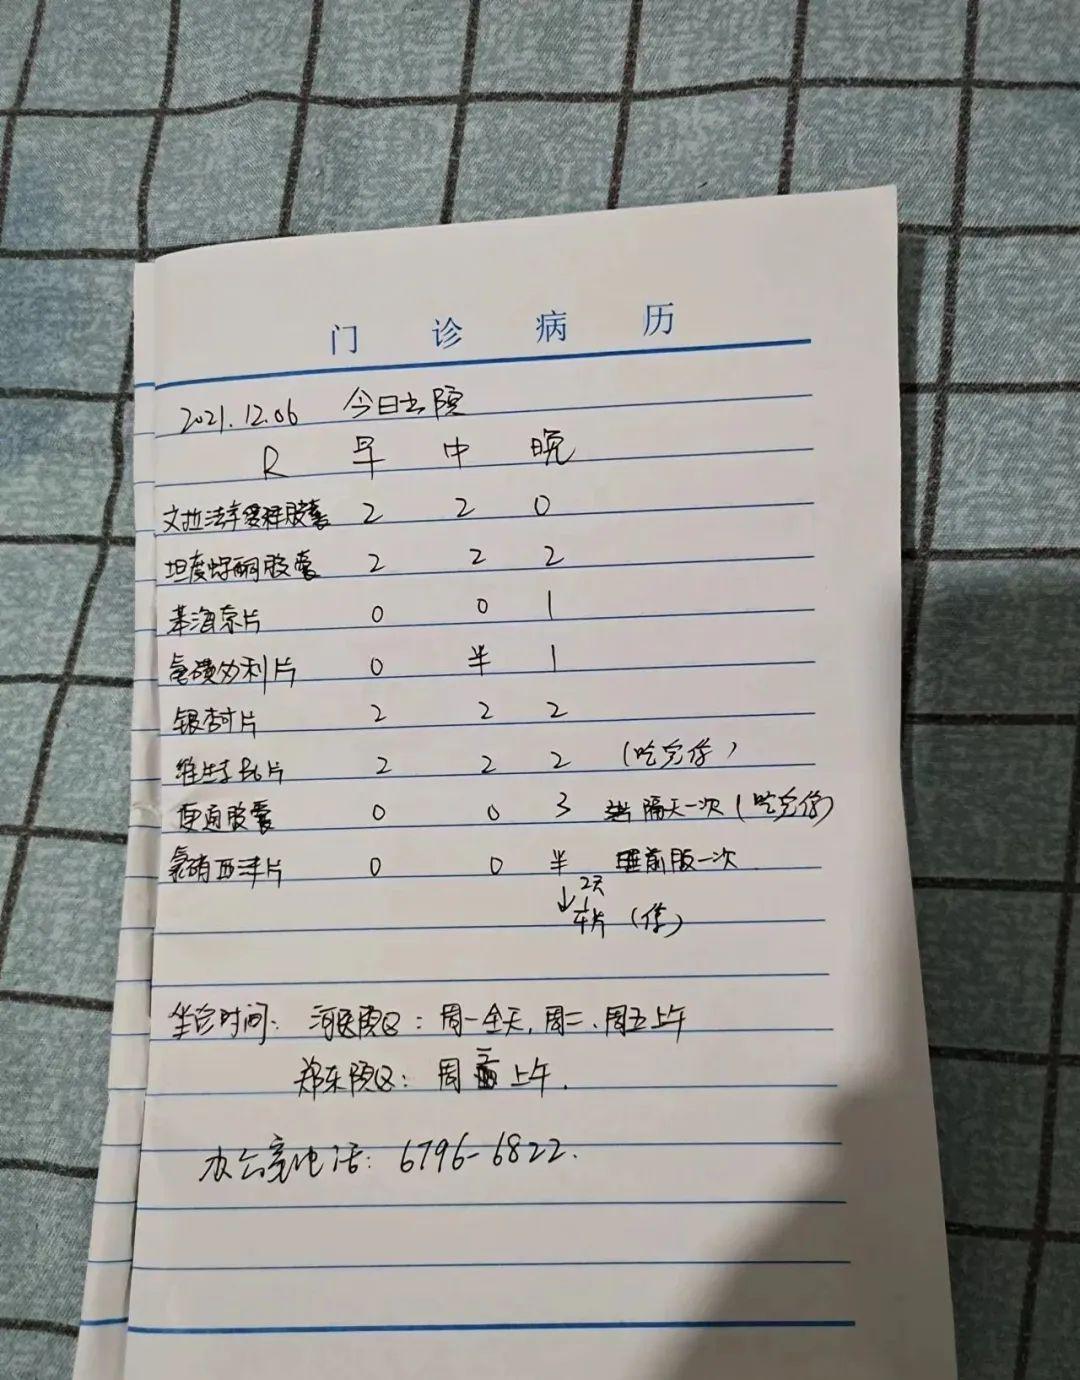 门诊病历
2021.12.06 今日出院
R 早 中 晚
文拉法辛缓释胶囊 2 2 0
坦度螺酮胶囊 2 2 2
苯海索片 0 0 1
氨磺必利片 0 半 1
银杏叶片 2 2 2
维生素B6片 2 2 2 (吃完停)
便通胶囊 0 0 3 隔天一次(吃完停)
氯硝西泮片 0 0 半 睡前服一次
↓2天
片 (停)
坐诊时间: 河医院区: 周一全天, 周二、周五上午
郑东院区: 周三上午.
办公室电话: 6796-6822.